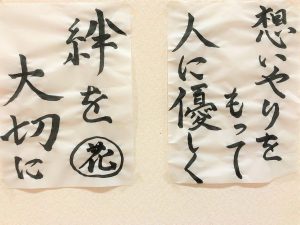 想いやりを
もって
人に優しく
絆を㊗
大切に